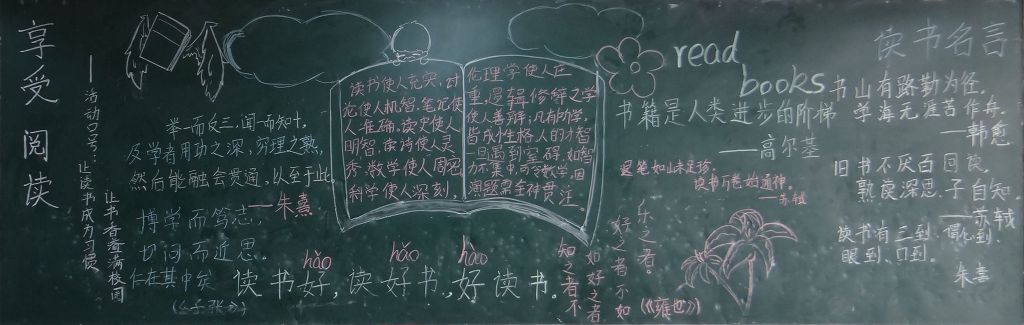 享受阅读
——活动口号:让读书成为习惯
让书香香满校园
举一而反三,闻一而知十,
及学者用功之深,穷理之熟,
然后能融会贯通,以至于此
——朱熹
博学而笃志,
切问而近思。
仁在其中矣
(《子张》)
读书使人充实,讨
论使人机智,笔记使
人准确,读史使人
明智,读诗使人灵
秀,数学使人周密
科学使人深刻,
伦理学使人庄
重,逻辑修辞之学
使人善辩,凡有所学,
皆成性格。人的才智
但遇到窒碍,如智
力不集中,可令数学,因
演题需全神贯注。
hǎo hǎo hào
读书好,读好书,好读书。
read
books
书籍是人类进步的阶梯
——高尔基
退笔如山未足珍,
读书万卷始通神。
——苏轼
知之者不
如好之者
好之者不如
乐之者。
(《雍也》)
读书名言
书山有路勤为径,
学海无涯苦作舟。
——韩愈
旧书不厌百回读,
熟读深思子自知
——苏轼
读书有三到,心到、
眼到、口到。
朱熹